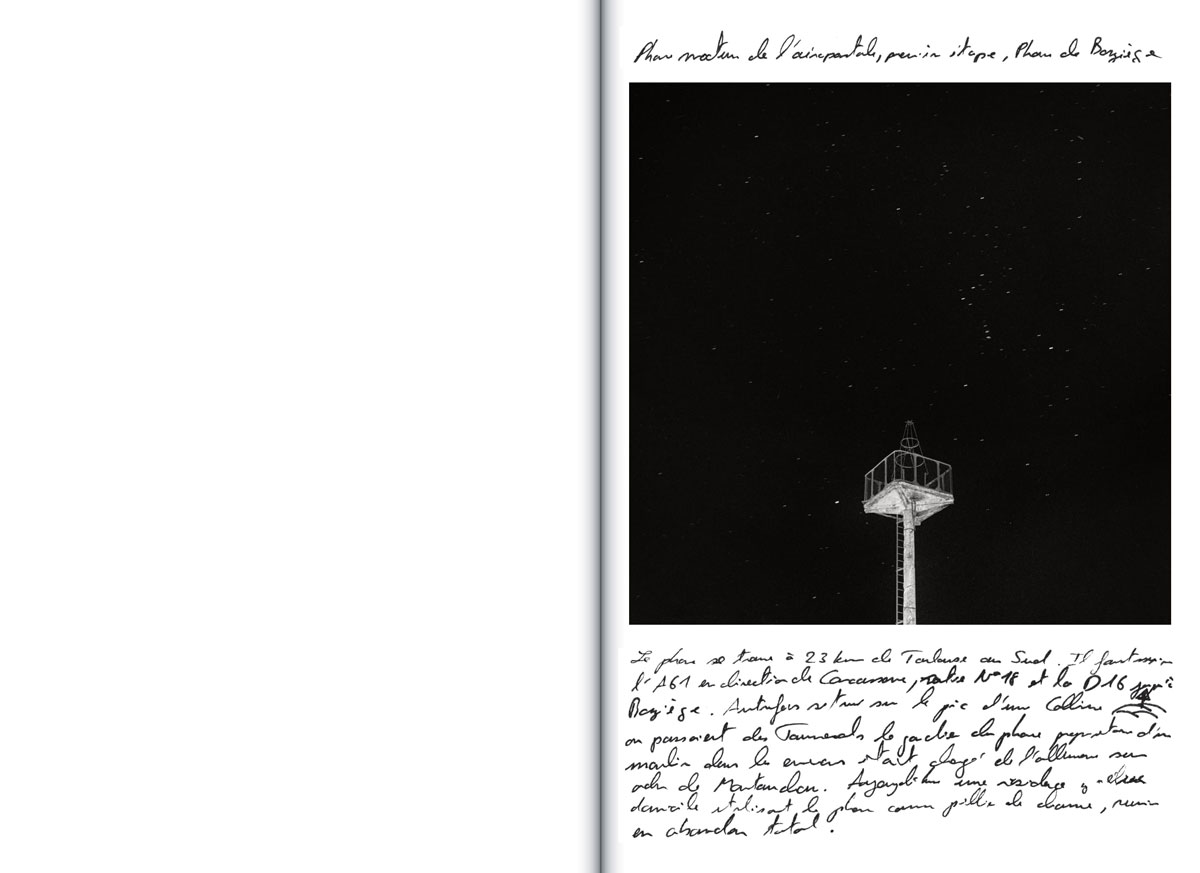 Phare nocturne de l'aéropostale, premier étape, Phare de Baziège
Le phare se trouve à 23 km de Toulouse au Sud. Il faut suivre
l'A61 en direction de Carcassonne, sortie N°18 et la D16 jusqu'à
Baziège. Autrefois situé sur le pic d'une Colline
ou passaient des Tournesols le gardien du phare propriétaire d'un
moulin dans les environs était chargé de l'allumer sur
ordre de Montaudran. Aujourd'hui une résidence y
domicile utilisant le phare comme pillier de , ruine
en abandon total.